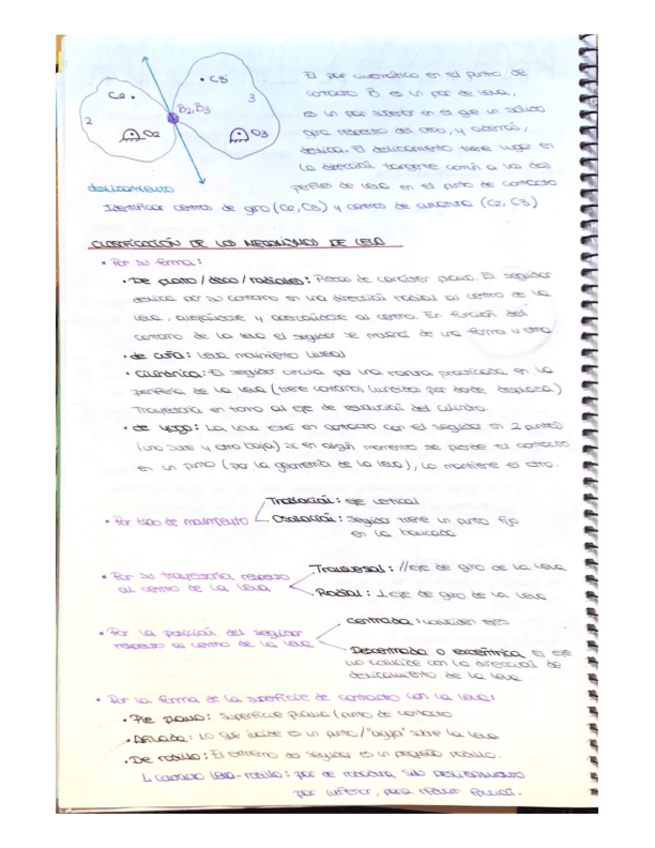 C2
C3
2
3
B2,B3
O2
O3
deslizamiento
El par cinemático en el punto de
contacto B es un par de leva,
es un par superior en el que un sólido
gira respecto del otro, y además,
desliza. El deslizamiento tiene lugar en
la dirección tangente común a los dos
perfiles de leva en el punto de contacto
Identificar centros de giro (C2, C3) y centros de curvatura (C2, C3)
CLASIFICACIÓN DE LOS MECANISMOS DE LEVA
• Por su forma:
• De plato / disco / radiales: Piezas de carácter plano. El seguidor
desliza por su contorno en una dirección radial al centro de la
leva, alejándose y acercándose al centro. En función del
contorno de la leva el seguidor se moverá de una forma u otra
• de cuña: Leva movimiento lineal
• Cilíndrica: El seguidor circula por una ranura practicada en la
periferia de la leva (tiene contornos por donde desplaza)
Trayectoria en torno al eje de revolución del cilindro.
• de yugo: La leva está en contacto con el seguidor en 2 puntos
(uno sube y otro baja) si en algún momento se pierde el contacto
en un punto (por la geometría de la leva), lo mantiene el otro.
• Por tipo de movimiento
Traslación: eje vertical
Oscilación: Seguidor tiene un punto fijo
en la bancada
• Por su trayectoria respecto
al centro de la leva
Transversal: // eje de giro de la leva
Radial: ⊥ eje de giro de la leva
• Por la posición del seguidor
respecto al centro de la leva
Centrada: coinciden ejes
Descentrada o excéntrica: El eje
no coincide con la dirección de
deslizamiento de la leva
• Por la forma de la superficie de contacto con la leva:
• Pie plano: Superficie plana / punto de contacto
• Afilada: Lo que incide es un punto / "aguja" sobre la leva
• De rodillo: El extremo del seguidor es un pequeño rodillo.
↳ contacto leva-rodillo: par de rodadura sin deslizamiento
par inferior, para reducir fricción.